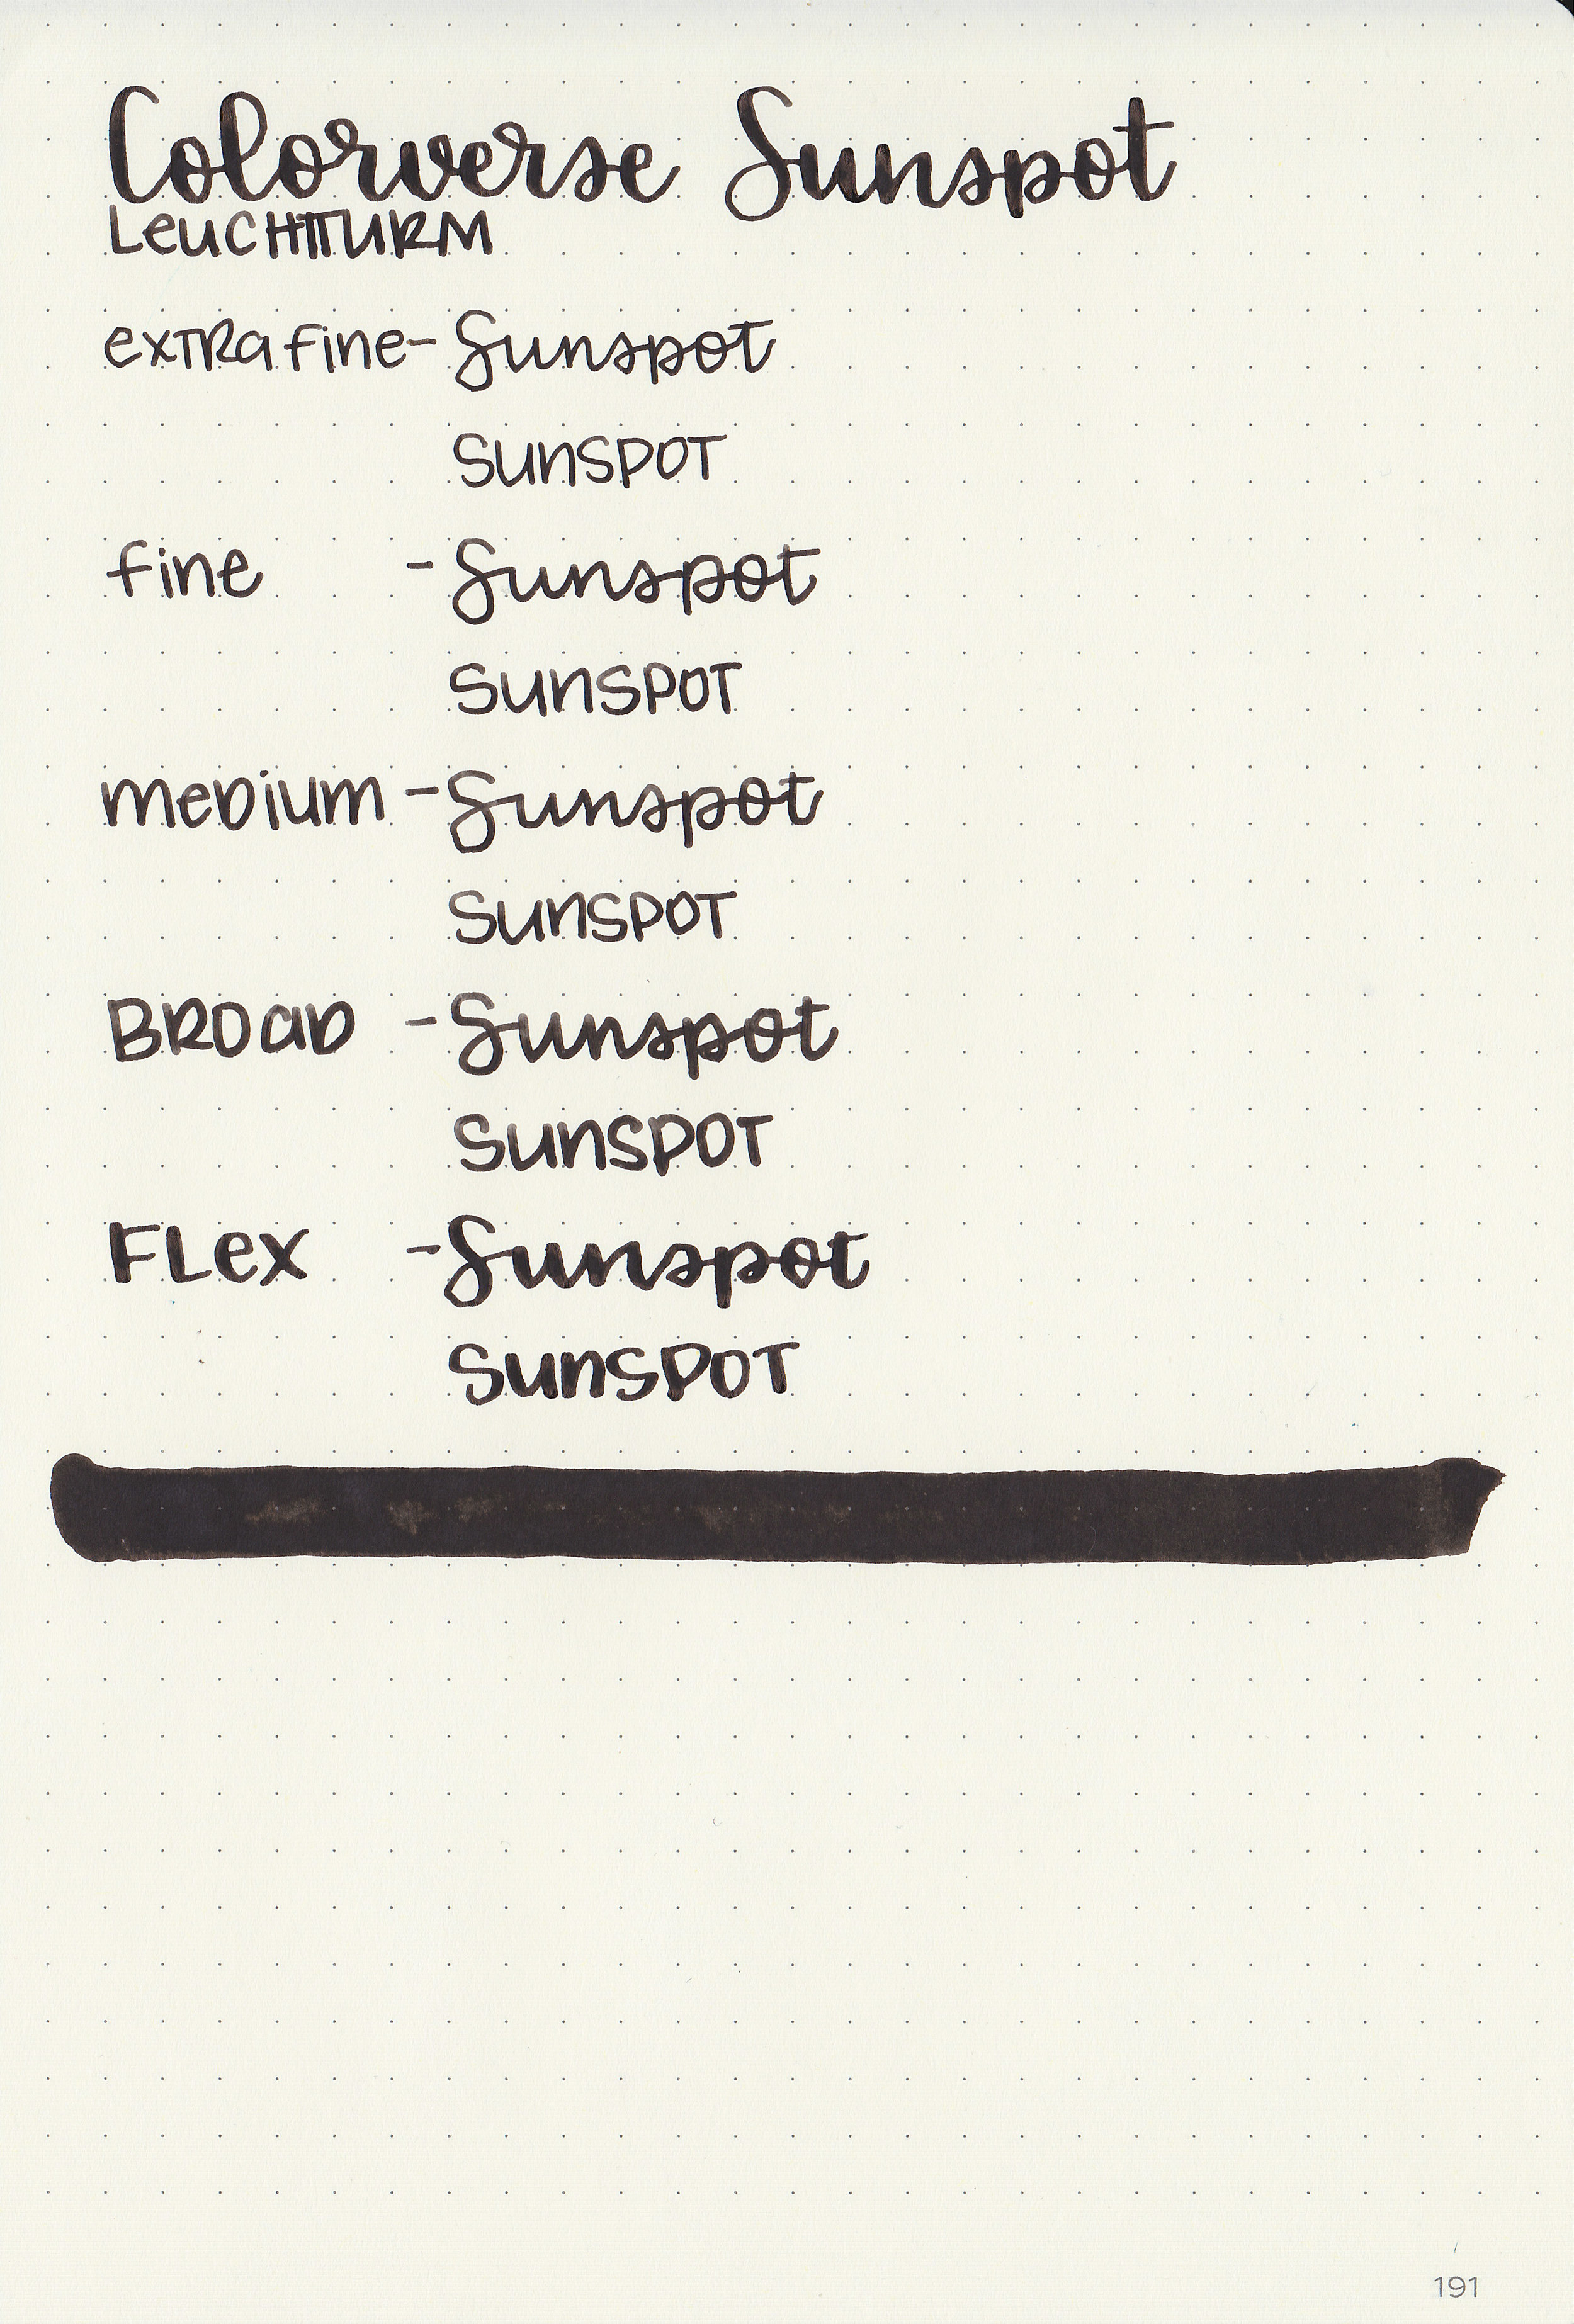 Colorverse Sunspot
LeuCHTTURM
exTRa fine - Sunspot
SunSPOT
fine - Sunspot
SunSPOT
meDium - Sunspot
SunSPOT
BROaD - Sunspot
SunSPOT
FLex - Sunspot
SunSPOT
191